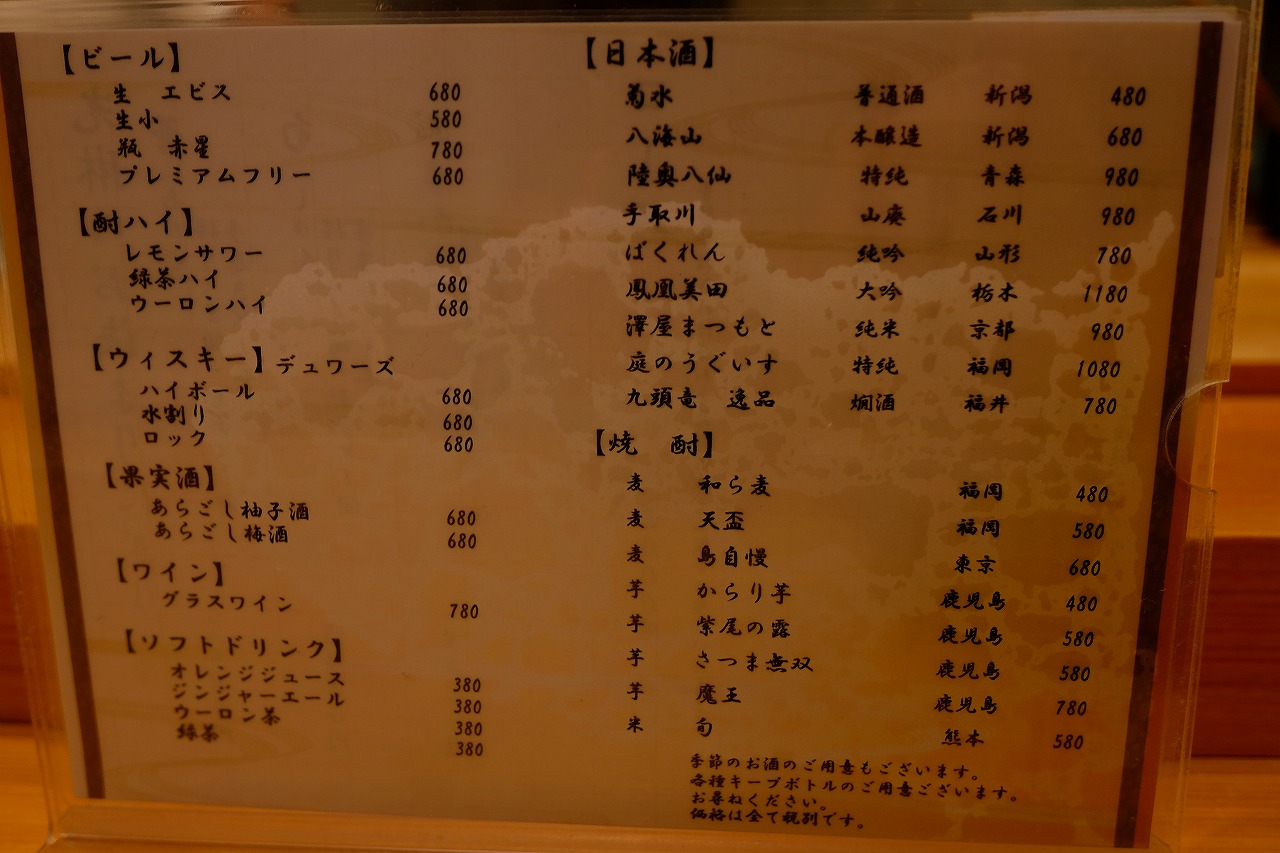 【ビール】
生 エビス 680
生小 580
瓶 赤星 780
プレミアムフリー 680
【酎ハイ】
レモンサワー 680
緑茶ハイ 680
ウーロンハイ 680
【ウィスキー】デュワーズ
ハイボール 680
水割り 680
ロック 680
【果実酒】
あらごし柚子酒 680
あらごし梅酒 680
【ワイン】
グラスワイン 780
【ソフトドリンク】
オレンジジュース 380
ジンジャーエール 380
ウーロン茶 380
緑茶 380
【日本酒】
菊水 普通酒 新潟 480
八海山 本醸造 新潟 680
陸奥八仙 特純 青森 980
手取川 山廃 石川 980
ばくれん 純吟 山形 780
鳳凰美田 大吟 栃木 1180
澤屋まつもと 純米 京都 980
庭のうぐいす 特純 福岡 1080
九頭竜 逸品 燗酒 福井 780
【焼 酎】
麦 和ら麦 福岡 480
麦 天盃 福岡 580
麦 島自慢 東京 680
芋 からり芋 鹿児島 480
芋 紫尾の露 鹿児島 580
芋 さつま無双 鹿児島 580
芋 魔王 鹿児島 780
米 旬 熊本 580
季節のお酒のご用意もございます。
各種キープボトルのご用意ございます。
お尋ねください。
価格は全て税別です。